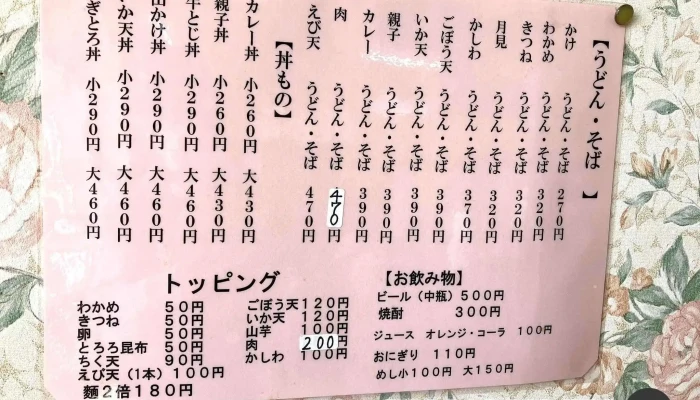 【うどん・そば】
かけ うどん・そば 270円
わかめ うどん・そば 320円
きつね うどん・そば 320円
月見 うどん・そば 320円
かしわ うどん・そば 370円
ごぼう天 うどん・そば 390円
いか天 うどん・そば 390円
親子 うどん・そば 390円
カレー うどん・そば 390円
肉 うどん・そば 470円
えび天 うどん・そば 470円
【丼もの】
カレー丼 小260円 大430円
親子丼 小260円 大430円
牛とじ丼 小290円 大460円
山かけ丼 小290円 大460円
いか天丼 小290円 大460円
ねぎとろ丼 小290円 大460円
トッピング
わかめ 50円
きつね 50円
卵 50円
とろろ昆布 50円
ちく天 90円
えび天（1本）100円
麺2倍180円
ごぼう天120円
いか天 120円
山芋 100円
肉 200円
かしわ 100円
【お飲み物】
ビール（中瓶）500円
焼酎 300円
ジュース オレンジ・コーラ 100円
おにぎり 110円
めし小100円 大150円